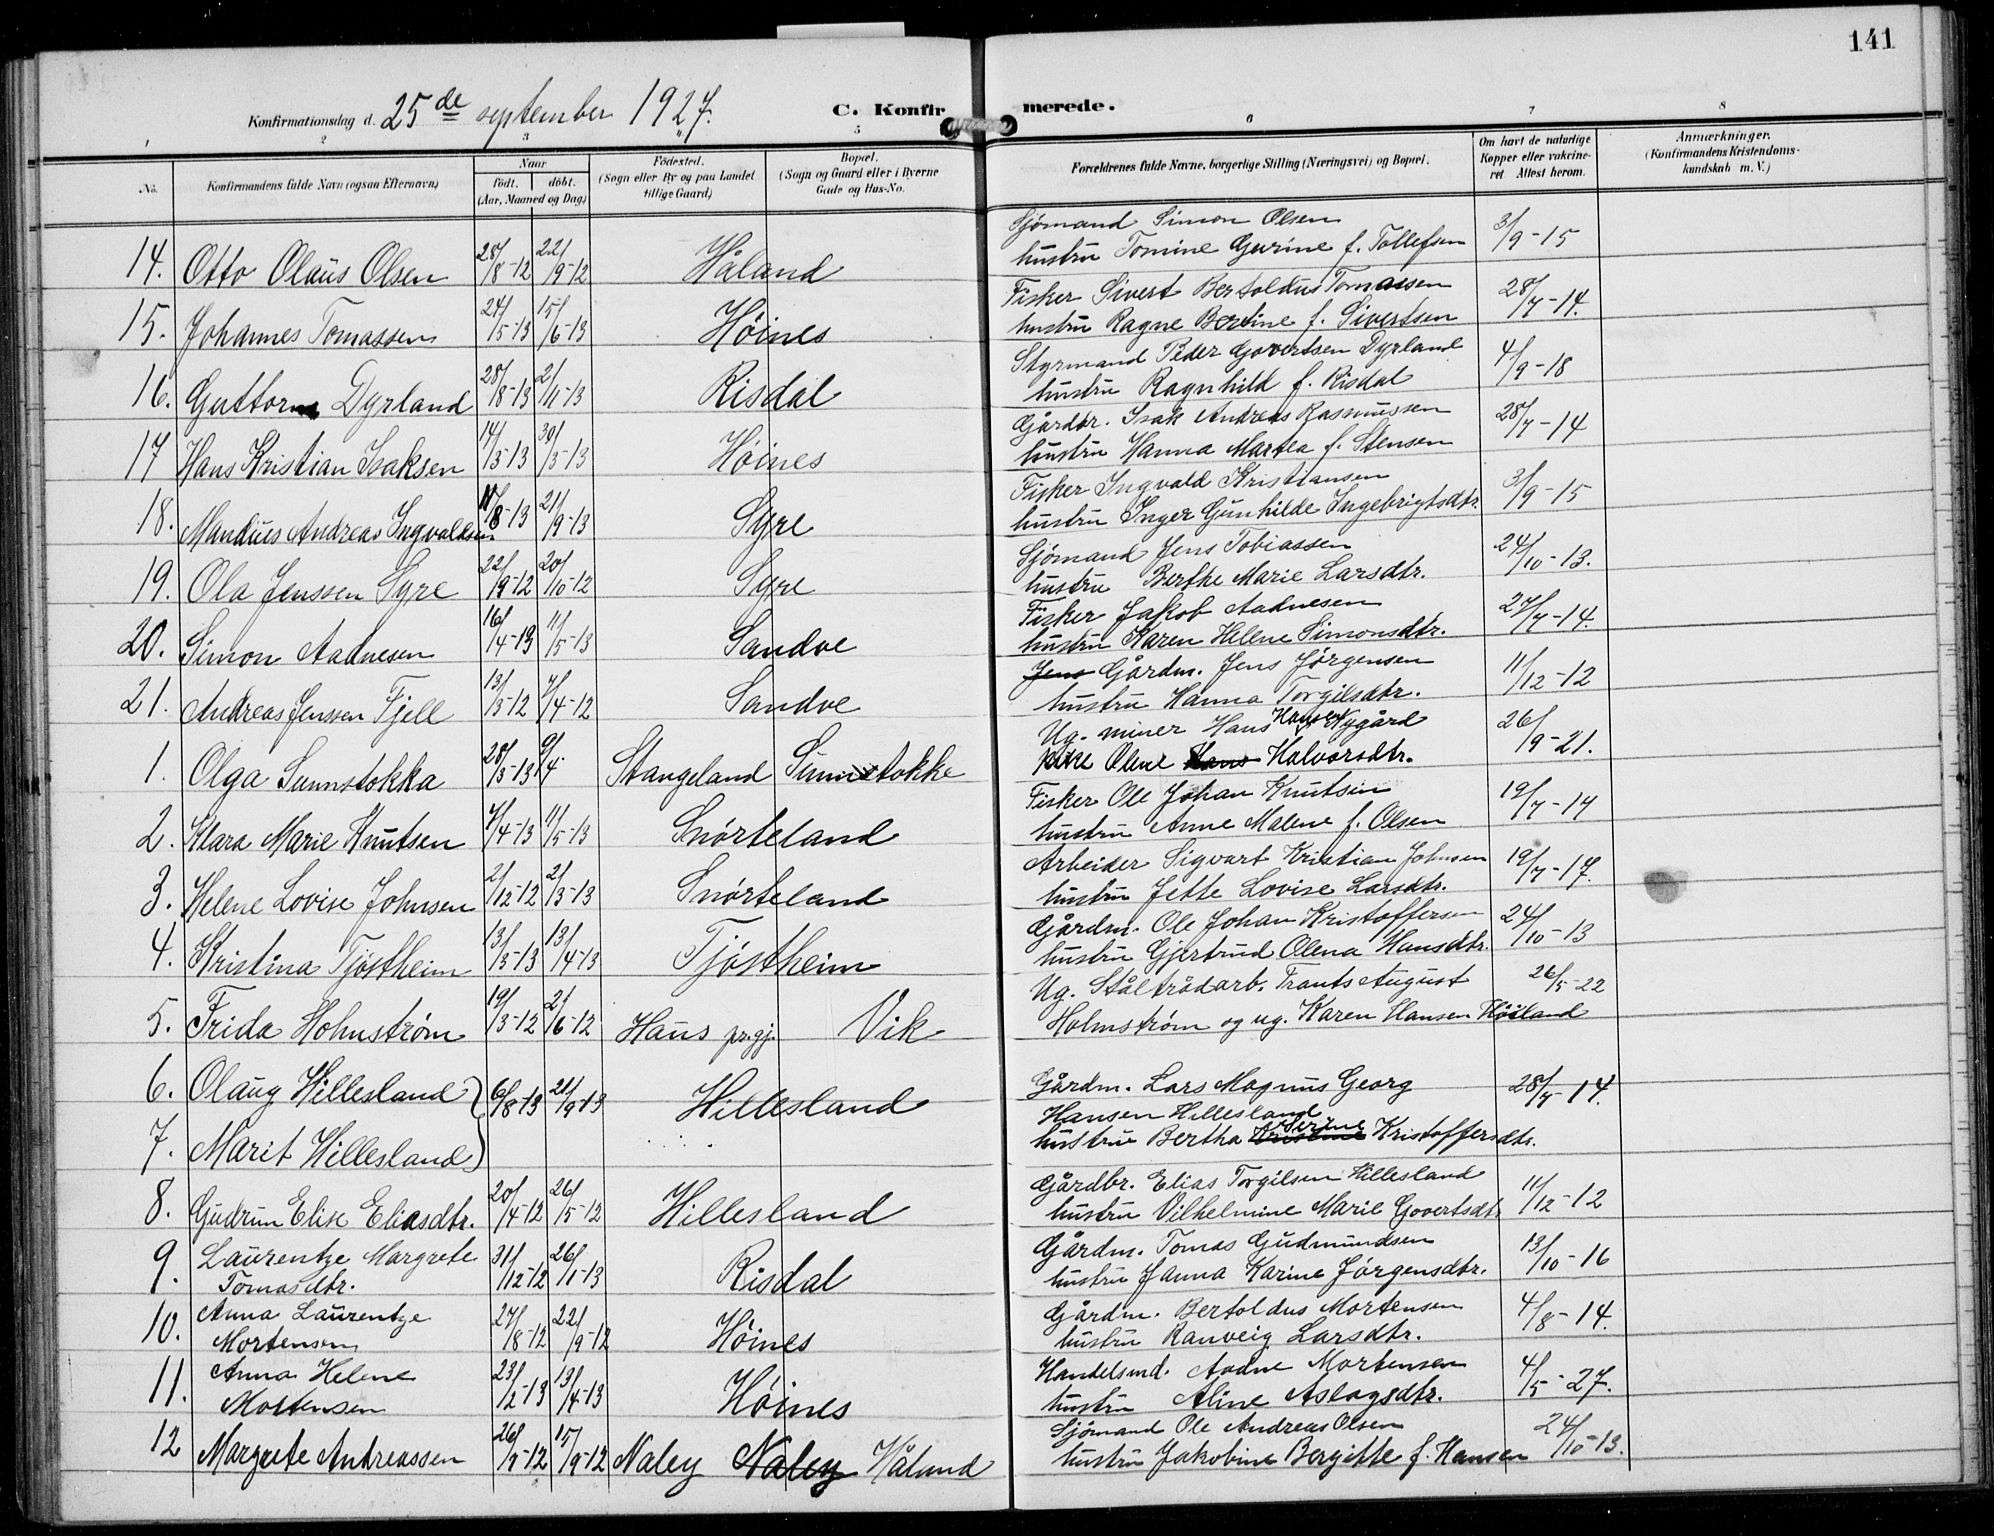 141
Konfirmationsdag d. 25de september 1927.
C. Konfirmerede.
1 2 3 5 6 7 8
No. Konfirmandens fulde Navn (ogsaa Efternavn) Naar født. døbt. (Aar, Maaned og Dag) Fødested. (Sogn eller By og paa Landet tillige Gaard) Bopæl. (Sogn og Gaard eller i Byerne Gade og Hus-No. Forældrenes fulde Navne, borgerlige Stilling (Næringsvei) og Bopæl. Om havt de naturlige Kopper eller vakcineret Attest herom. Anmærkninger. (Konfirmandens Kristendomskundskab m. V.)
14. Otto Olaus Olsen 28/8-12 22/9-12 Håland Sjømand Simon Olsen 3/9-15
hustru Tomine Gurine f. Tollefsen
15. Johannes Tomassen 24/5-13 15/6-13 Høines Fisker Sivert Bertoldus Tomassen 28/7-14.
hustru Ragne Bertine f. Sivertsen
16. Guttorm Dyrland 28/8-13 2/11-13 Risdal Styrmand Peder Govertsen Dyrland 4/9-18
hustru Ragnhild f. Risdal
17 Hans Kristian Isaksen 14/3-13 30/3-13 Høines Gårdbr. Isak Andreas Rasmussen 28/7-14
hustru Hanna Martea f. Stensen
18. Mandius Andreas Ingvaldsen 17/8-13 21/9-13 Syre Fisker Ingvald Kristiansen 3/9-15
hustru Inger Gunhilde Ingebrigtsdtr.
19. Ola Jenssen Syre 22/9-12 20/10-12 Syre Sjømand Jens Tobiassen 24/10-13.
hustru Berthe Marie Larsdtr.
20. Simon Aadnesen 16/4-13 11/5-13 Sandve Fisker Jakob Aadnesen 27/7-14.
hustru Karen Helene Simonsdtr.
21. Andreas Jenssen Fjell 13/3-12 7/4-12 Sandve Jens Gårdm. Jens Jørgensen 11/12-12
hustru Hanna Torgilsdtr.
1. Olga Sunnstokka 28/3-13 9/4 Stangeland Sunnstokke Ug. miner Hans Hansen Nygård 26/9-21.
Pike Olene Hans Halvorsdtr.
2. Klara Marie Knutsen 7/4-13 11/5-13 Snørteland Fisker Ole Johan Knutsen 19/7-14
hustru Anne Malene f. Olsen
3. Helene Lovise Johnsen 2/12-12 2/3-13 Snørteland Arbeider Sigvart Kristian Johnsen 19/7-17.
hustru Jette Lovise Larsdtr.
4. Kristina Tjøstheim 13/3-13 13/4-13 Tjøstheim Gårdm. Ole Johan Kristoffersen 24/10-13
hustru Gjertrud Olena Hansdtr.
5. Frida Holmstrøm 19/3-12 2/6-12 Haus pr.gj. Vik Ug. Ståltrådarb. Frants August 26/5-22
Holmstrøm og ug. Karen Hansen Høiland
6. Olaug Hillesland 6/8-13 21/9-13 Hillesland Gårdm. Lars Magnus Georg 28/7-14.
Hansen Hillesland
7. Marit Hillesland hustru Bertha Kristine Serine Kristoffersdtr.
8. Gudrun Elise Eliasdtr. 20/4-12 26/5-12 Hillesland Gårdbr. Elias Torgilsen Hillesland 11/12-12
hustru Vilhelmine Marie Govertsdtr
9. Laurentze Margrete Tomasdtr. 31/12-12 26/1-13 Risdal Gårdm. Tomas Gudmundsen 13/10-16
hustru Janna Karine Jørgensdtr.
10. Anna Laurentze Mortensen 27/8-12 22/9-12 Høines Gårdm. Bertoldus Mortensen 4/8-14.
hustru Ranveig Larsdtr.
11. Anna Helene Mortensen 23/2-13 13/4-13 Høines Handelsmd. Aadne Mortensen 4/5-27.
hustru Aline Aslagsdtr.
12 Margrete Andreassen 26/7-12 15/9-12 Naley Naley Håland Sjømand Ole Andreas Olsen 24/10-13.
hustru Jakobine Bergitte f. Hansen